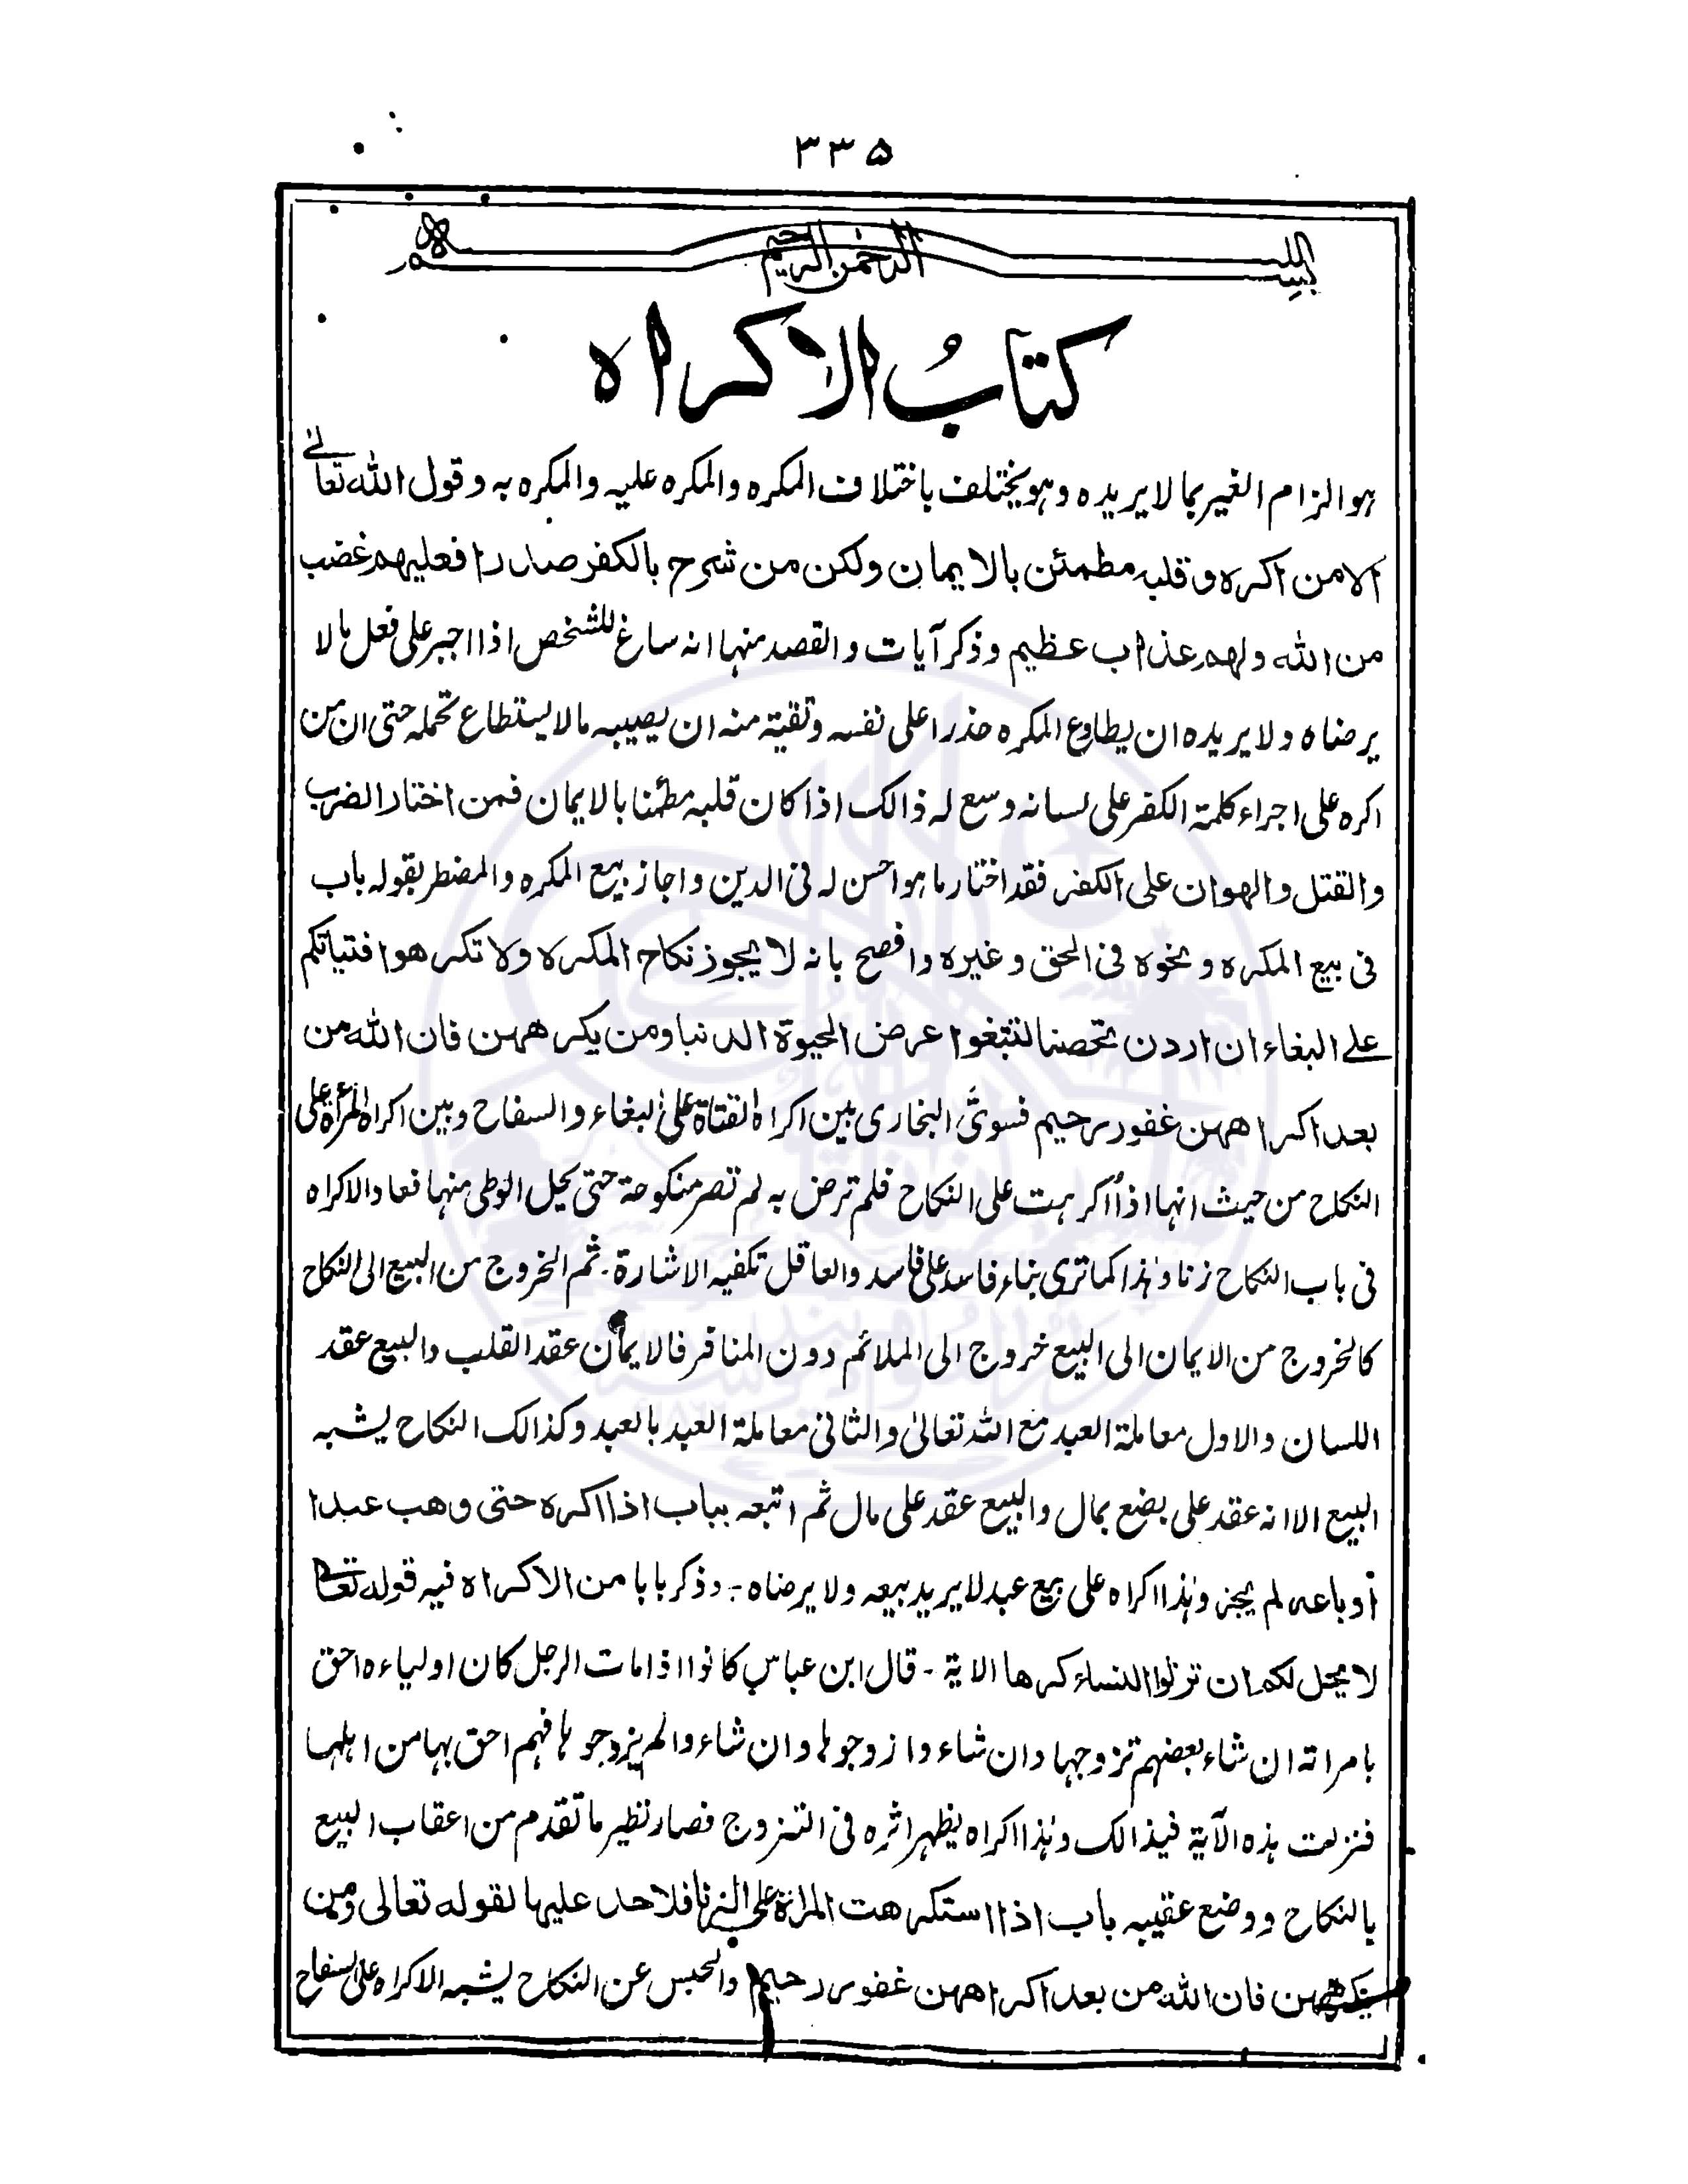 ۳۳۵
بسم الله الرحمن الرحيم
كتابُ الاكراه
هو الزام الغير بما لا يريده وهو يختلف باختلاف المكره والمكره عليه والمكره به وقول الله تعالے
الا من اكره وقلبه مطمئن بالايمان ولكن من شرح بالكفر صدرا فعليهم غضب
من الله ولهم عذاب عظيم وذكر آيات والقصد منها انه ساغ للشخص اذا اجبر على فعل مالا
يرضاه ولا يريده ان يطاوع المكره حذرا على نفسه وتقية منه ان يصيبه مالا يستطاع تحمله حتى ان من
اكره على اجراء كلمة الكفر على لسانه وسع له ذالك اذا كان قلبه مطمئنا بالايمان فمن اختار الضرب
والقتل والهوان على الكفر فقد اختار ما هو احسن له في الدين واجاز بيع المكره والمضطر بقوله باب
فى بيع المكره ونحوه فى الحق وغيره وافصح بانه لا يجوز نكاح المكره ولا تكرهوا فتياتكم
علے البغاء ان اردن تحصنا لتبتغوا عرض الحيوة الدنيا ومن يكرههن فان الله من
بعد اكراههن غفور رحيم فسوىّ البخارى بين اكراه الفتاة على البغاء والسفاح وبين اكراه المرأة على
النكاح من حيث انها اذا اكرهت على النكاح فلم ترض به لم تصر منكوحة حتى يحل الوطى منها فعاد الاكراه
فى باب النكاح زنا وهٰذا كما ترى بناء فاسد على فاسد والعاقل تكفيه الاشارة - ثم الخروج من البيع الى النكاح
كالخروج من الايمان الى البيع خروج الى الملائم دون المنافر فالايمان عقد القلب والبيع عقد
اللسان والاول معاملة العبد مع الله تعالىٰ والثانى معاملة العبد بالعبد وكذالك النكاح يشبه
البيع الا انه عقد على بضع بمال والبيع عقد على مال ثم اتبعه بباب اذا اكره حتى وهب عبدا
أو باعه لم يجز وهٰذا اكراه على بيع عبد لا يريد بيعه ولا يرضاه - وذكر بابا من الاكراه فيه قوله تعالے
لا يحل لكم ان ترثوا النساء كرها الاية - قال ابن عباس كانوا اذا مات الرجل كان اولياءه احق
بامراته ان شاء بعضهم تزوجها وان شاءوا زوجوها وان شاءوا لم يزوجوها فهم احق بها من اهلها
فنزلت هذه الآية فيذالك وهٰذا اكراه يظهر اثره فى التزوج فصار نظير ما تقدم من اعقاب البيع
بالنكاح ووضع عقيبه باب اذا استكرهت المراة على الزنا فلا حد عليها لقوله تعالى ومن
يكرههن فان الله من بعد اكراههن غفور رحيم والحبس عن النكاح يشبه الاكراه على السفاح